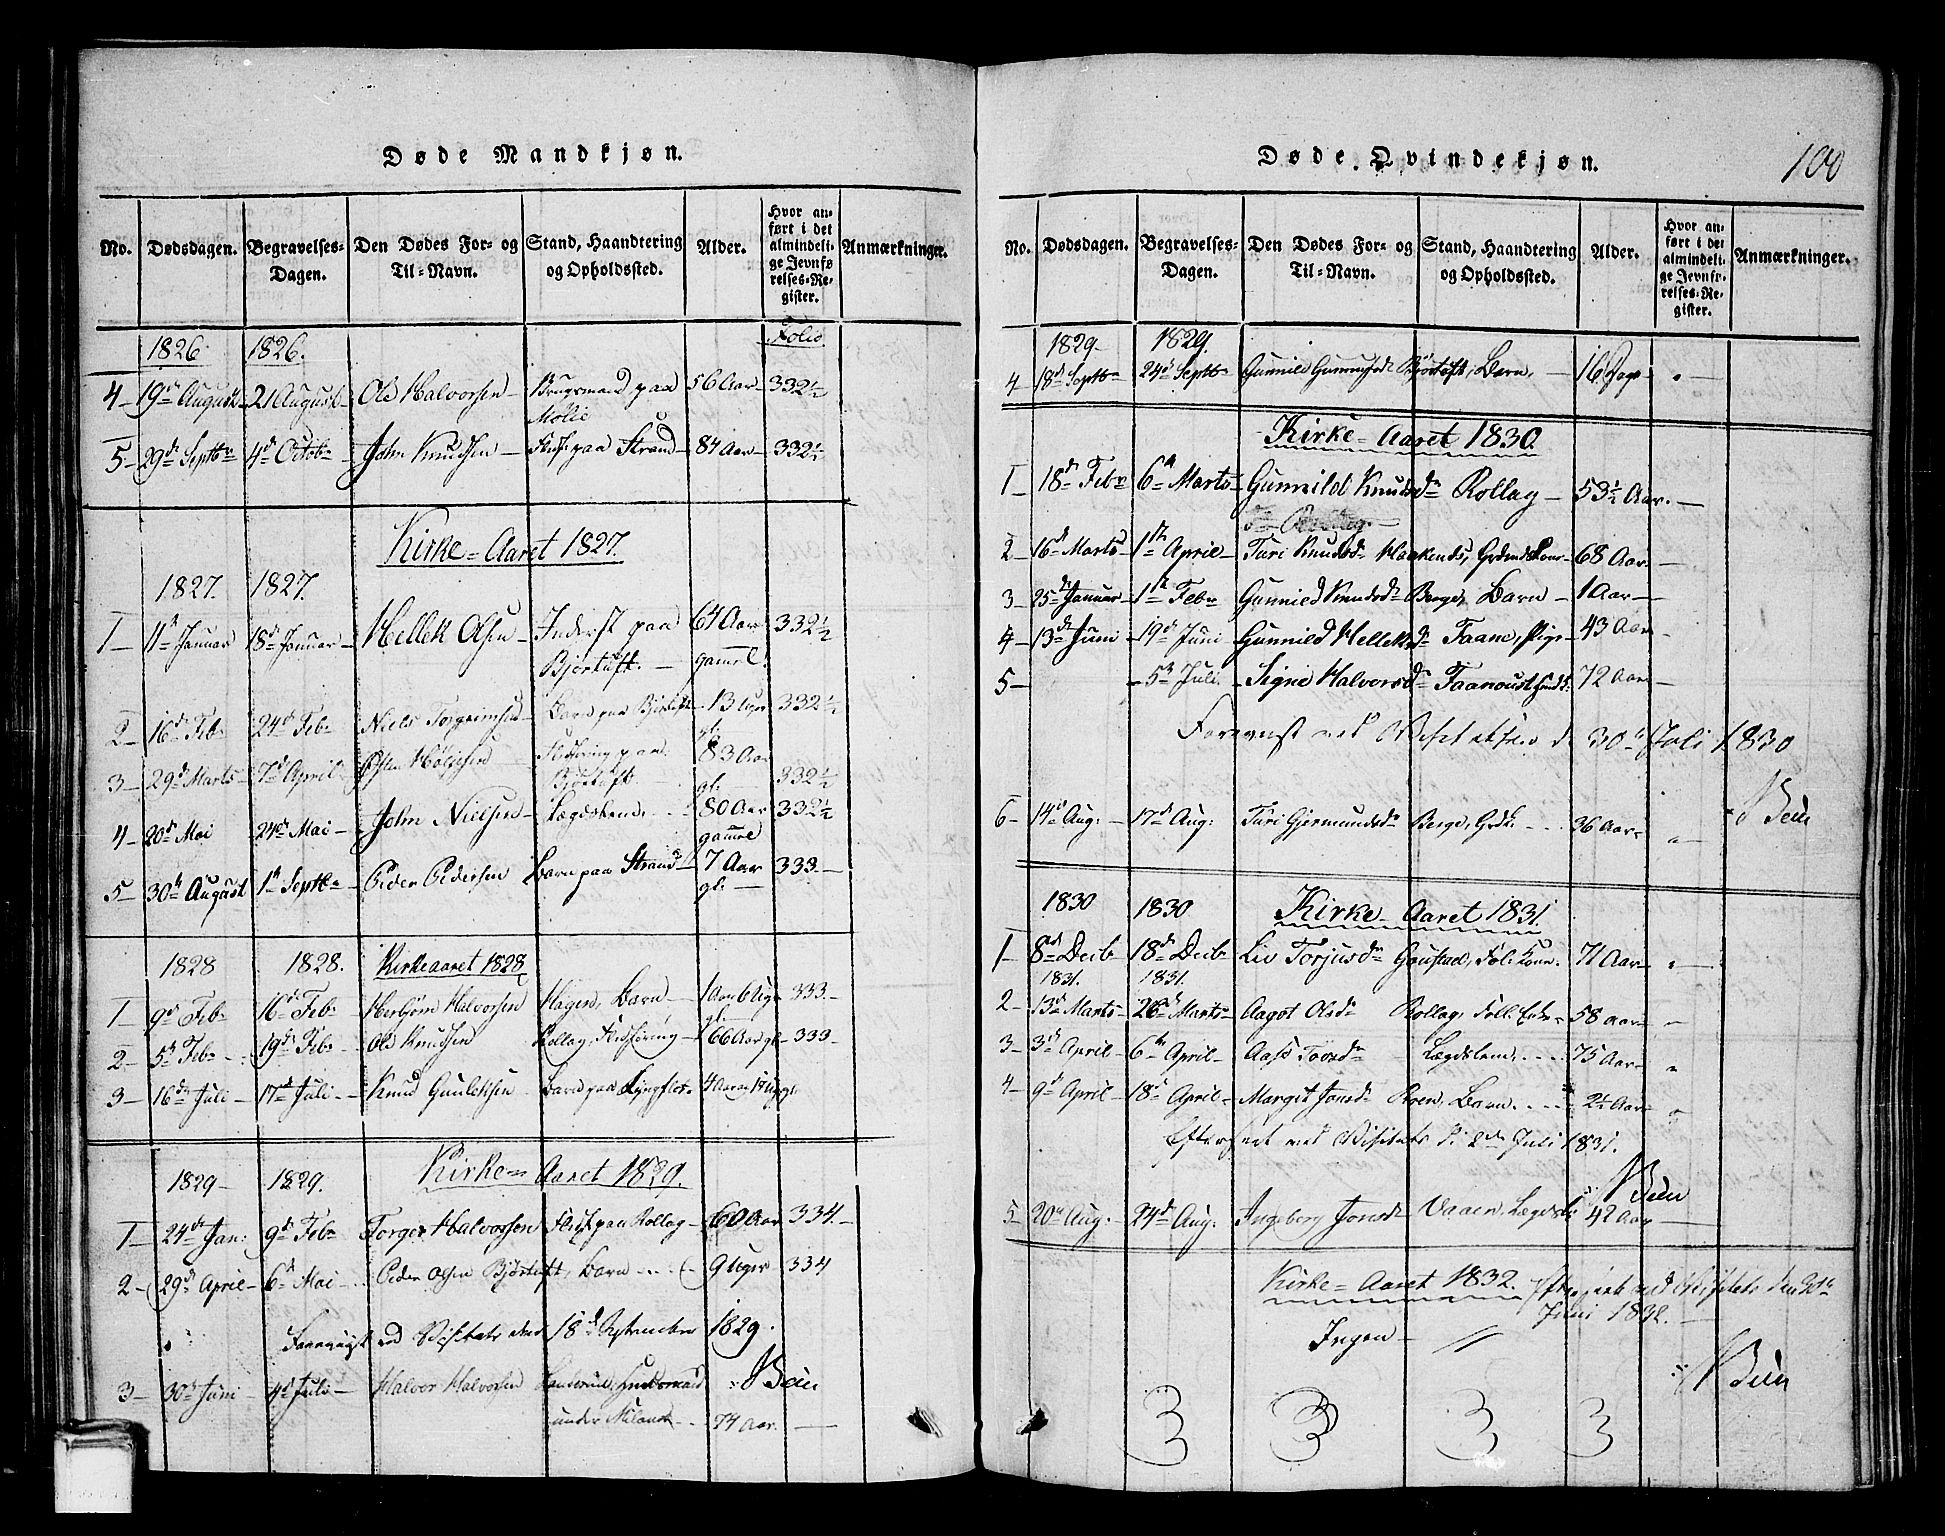 Døde Mandkjøn.
No. Dødsdagen. Begravelses-Dagen. Den Dødes For- og Til-Navn. Stand, Haandtering og Opholdssted. Alder. Hvor anført i det almindelige Jevnførelses-Register. Anmærkninger.
Folio
1826 1826.
4 19de August 21 August Ole Halvorsen Brugsmand paa 56 Aar 332½
Molie
5 29de Septbr 4de Octobr John Knudsen paa Strand 84 Aar 332½
Kirke-Aaret 1827.
1827. 1827.
1 11te Januar 18de Januar Hellek Olsen Inderst paa 64 Aar 332½
Bjørtuft. gamel.
2 16de Febr 24de Febr Niels Torgrimsen Barn paa Bjørtuft 13 Uger 332½
3 29de Marts 7de April Østen paa 83 Aar
Bjørtuft gl. 332½
4 20de Mai 24de Mai John Nielsen Lægdslem 80 Aar 332½
gamel
5 30te August 1te Septbr Peder Pedersen Barn paa Strand 7 Aar 333.
gl.
1828 1828. Kirkeaaret 1828
1 9de Febr 16de Febr Herbjørn Halvorsen Hagen, Barn 1 Aar 6 Ug 333.
gl.
2 5te Febr 19de Febr Ole Knudsen Rollag, 66 Aar gl. 333.
3 16de Juli 17de Juli Knud Gunleksen Barn paa 4 Aar
Kirke-Aaret 1829.
1829 1829.
1 24de Jan: 9de Febr Torger Halvorsen paa Rollag 60 Aar 334.
2 29de April 6te Mai Peder Olsen Bjørtuft, Barn 9 Uger 334
Foreviist ved Visitats den 18de Septembr 1829.
NBein
3 30te Juni 4de Juli Halvor Halvorsen Huusmand
under Miland 74 Aar.
100
Døde Qvindekjøn.
No. Dødsdagen. Begravelses-Dagen. Den Dødes For- og Til-Navn. Stand, Haandtering og Opholdssted. Alder. Hvor anført i det almindelige Jevnførelses-Register. Anmærkninger.
1829. 1829.
4 18de Septbr 24de Septbr Gunnild Bjørtuft, Barn, 16 Dage
Kirke-Aaret 1830.
1 18de Febr 6te Marts Gunnild Knudsdr Rollag 53½ Aar.
2 16de Marts 1te April Turi Knudsdr Haakenæs, 68 Aar
3 25de Januar 1te Febr Gunnild Knudsdr Berge, Barn 1 Aar
4 13de Juni 19de Juni Gunnild Helleksdr Faane, Pige 43 Aar
5 5te Juli Signe Halvorsdr 72 Aar
Foreviist ved Visitatsen d 30te Juli 1830
NBein
6 14de Aug: 17de Aug: Turi Gjermundsdr Berge, 36 Aar
1830 1830 Kirke-Aaret 1831.
1 8de Decb 18de Decb Liv Torjusdr Goustad, Kone 71 Aar
1831. 1831.
2 13de Marts 26de Marts Aagot Olsdr Rollag, 58 Aar
3 3de April 6te April Lægdslem, 75 Aar
4 9de April 18de April Margit Jonsdr Roen, Barn 2½ Aar
Efterseet ved Visitats d: 2de Juli 1831.
NBein
5 20de Aug. 24de Aug: Ingeborg Jonsdr Vaaen, Lægdsl: 42 Aar
Kirke-Aaret 1832. Efterseet ved Visitats den
Juni 1832.
Ingen
NBein
3 3 3 3